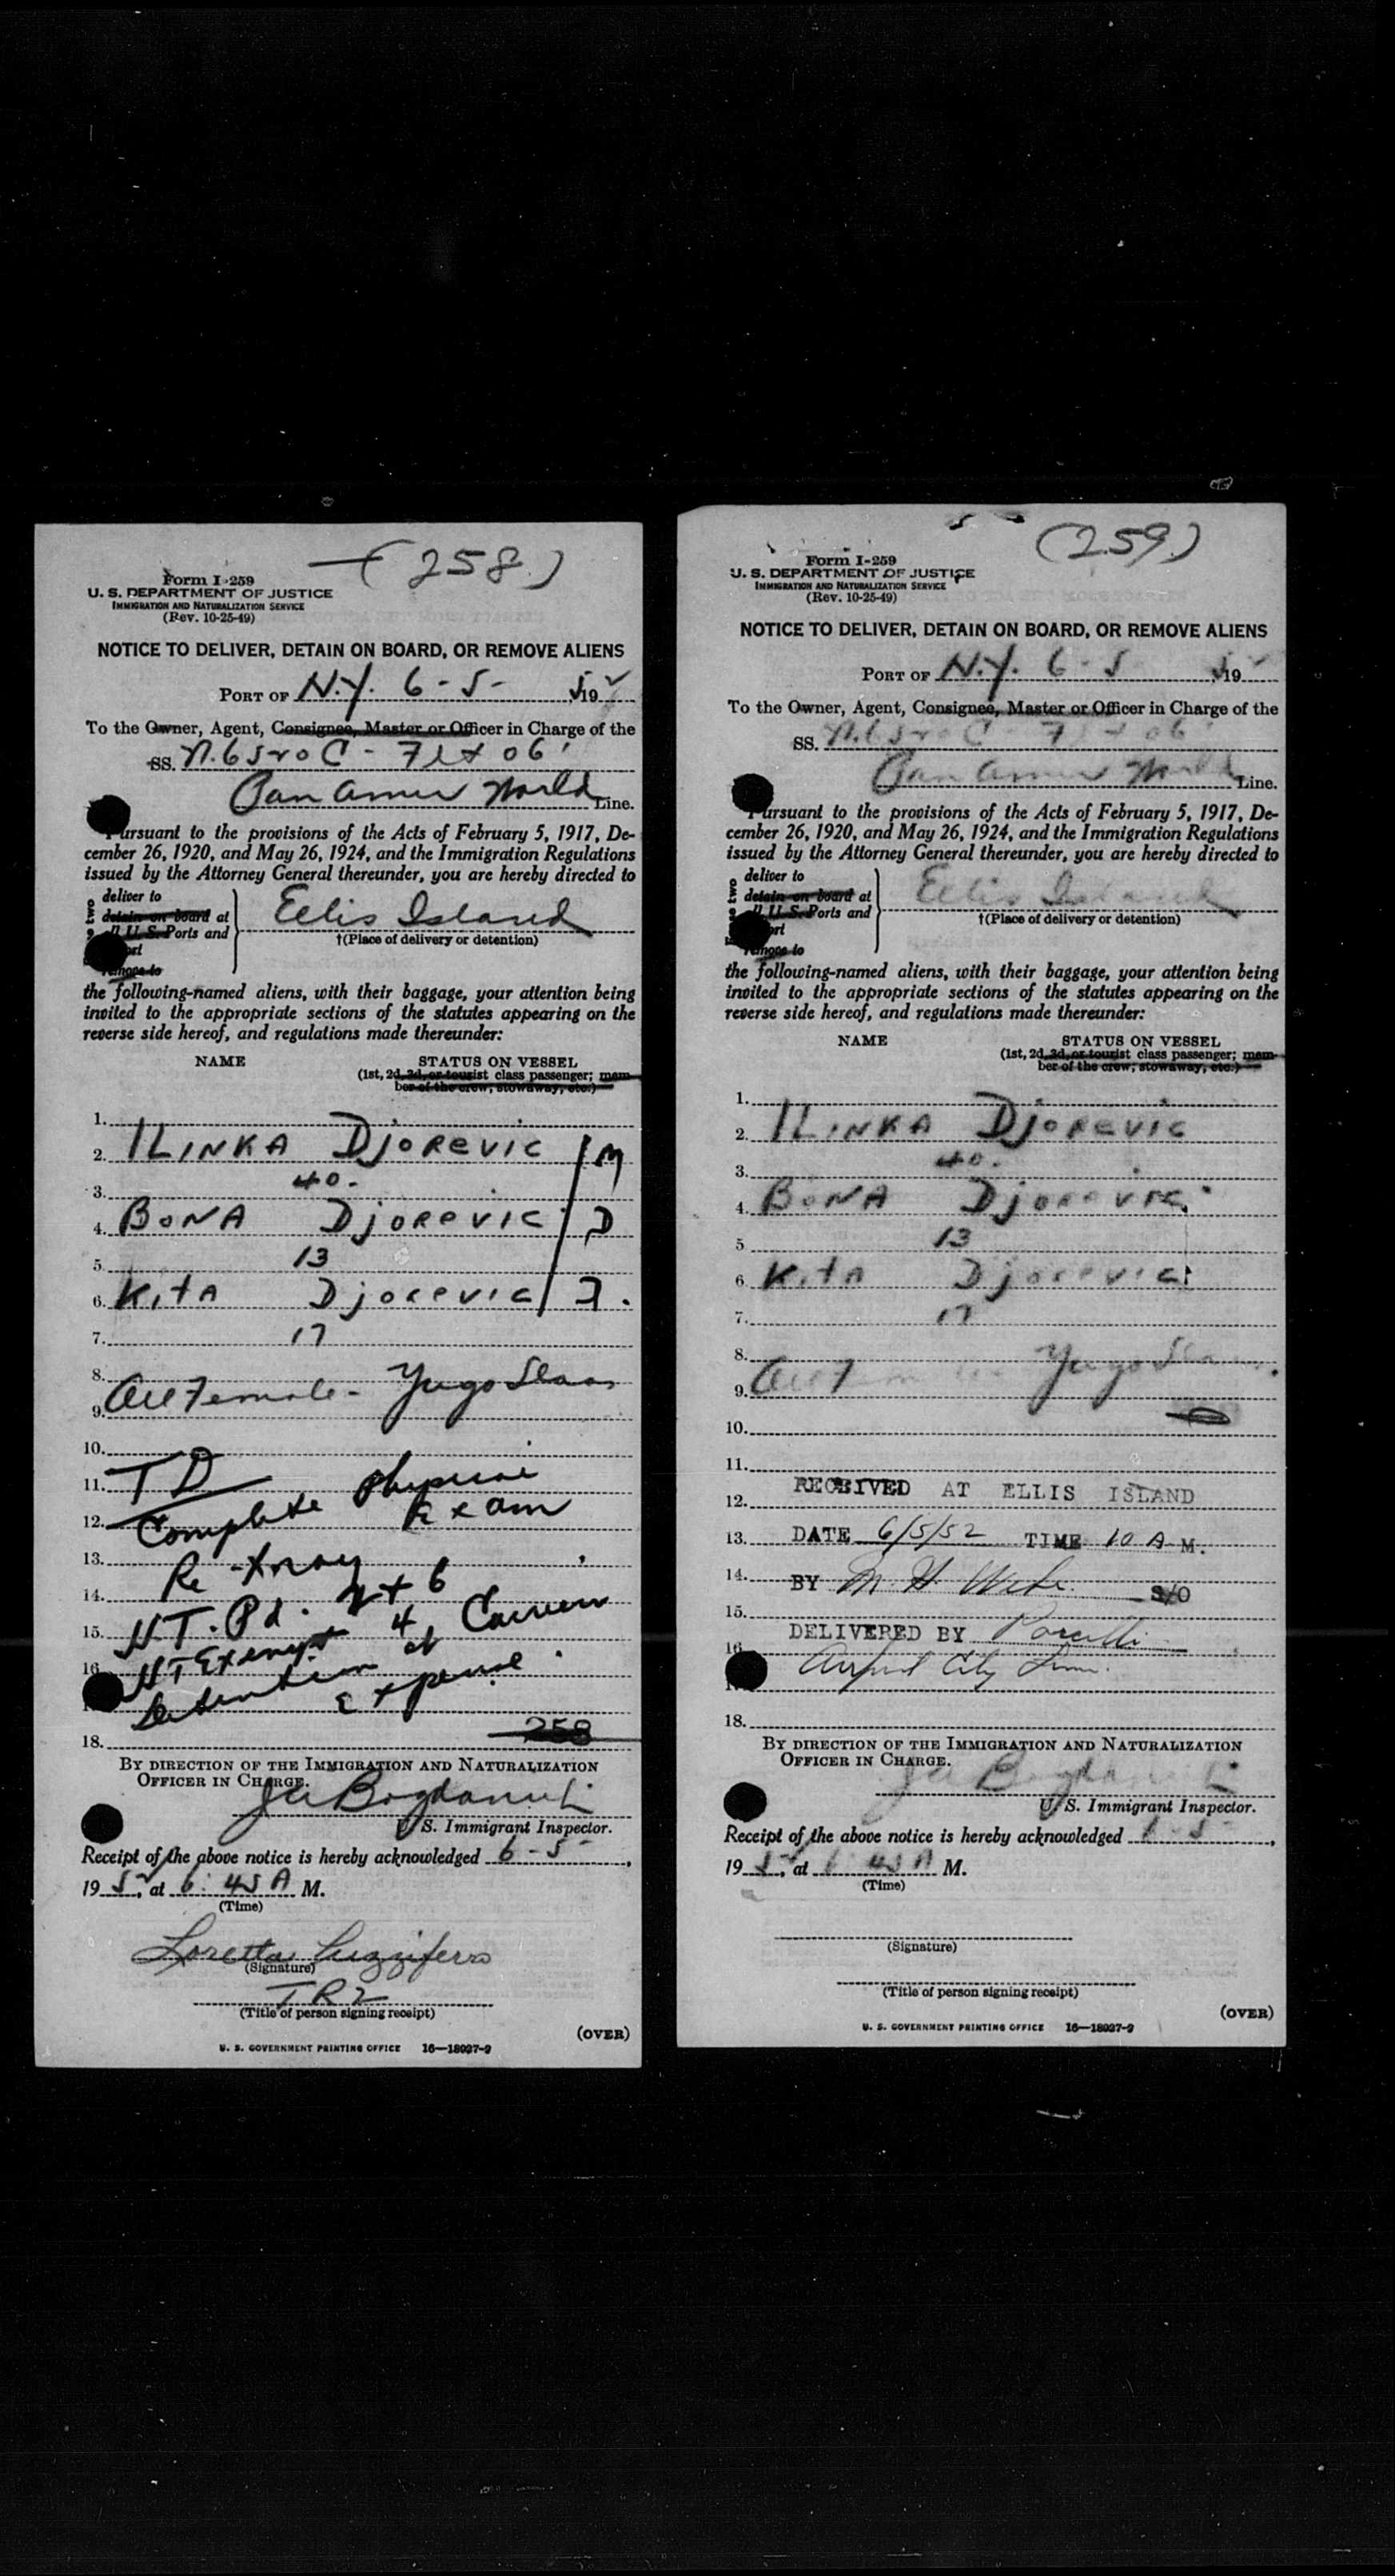 (258)
Form I-259
U. S. DEPARTMENT OF JUSTICE
IMMIGRATION AND NATURALIZATION SERVICE
(Rev. 10-25-49)
NOTICE TO DELIVER, DETAIN ON BOARD, OR REMOVE ALIENS
PORT OF N.Y. 6-5-, 1952
To the Owner, Agent, Consignee, Master or Officer in Charge of the
SS. N.6520C - Flt 06
Pan Amer World Line.
Pursuant to the provisions of the Acts of February 5, 1917, De-
cember 26, 1920, and May 26, 1924, and the Immigration Regulations
issued by the Attorney General thereunder, you are hereby directed to
deliver to
detain on board at
U.S. Ports and
remove to
Ellis Island
†(Place of delivery or detention)
the following-named aliens, with their baggage, your attention being
invited to the appropriate sections of the statutes appearing on the
reverse side hereof, and regulations made thereunder:
NAME STATUS ON VESSEL
(1st, 2d, 3d, or tourist class passenger; mem-
ber of the crew; stowaway, etc.)
1.
2. ILINKA DJOREVIC / M
3. 40.
4. BONA DJOREVIC / D
5. 13
6. KITA DJOREVIC / D.
7. 17
8.
9. All Female - Yugo Slav
10.
11. TD Physical
12. Complete Exam
13. Re-Xray
14. HT. Pd. 2 + 6
15. HT Exempt 4
16. Detention at Carrier
Expense.
258
18.
BY DIRECTION OF THE IMMIGRATION AND NATURALIZATION
OFFICER IN CHARGE.
U. S. Immigrant Inspector.
Receipt of the above notice is hereby acknowledged 6-5-,
1952, at 6:45 A M.
(Time)
Loretta Luzzifero
(Signature)
(Title of person signing receipt)
(OVER)
U. S. GOVERNMENT PRINTING OFFICE 16—18027-2
(259)
Form I-259
U. S. DEPARTMENT OF JUSTICE
IMMIGRATION AND NATURALIZATION SERVICE
(Rev. 10-25-49)
NOTICE TO DELIVER, DETAIN ON BOARD, OR REMOVE ALIENS
PORT OF N.Y. 6-5, 1952
To the Owner, Agent, Consignee, Master or Officer in Charge of the
SS. N.6520C - Flt 06
Pan Amer World Line.
Pursuant to the provisions of the Acts of February 5, 1917, De-
cember 26, 1920, and May 26, 1924, and the Immigration Regulations
issued by the Attorney General thereunder, you are hereby directed to
deliver to
detain on board at
U.S. Ports and
remove to
Ellis Island
†(Place of delivery or detention)
the following-named aliens, with their baggage, your attention being
invited to the appropriate sections of the statutes appearing on the
reverse side hereof, and regulations made thereunder:
NAME STATUS ON VESSEL
(1st, 2d, 3d, or tourist class passenger; mem-
ber of the crew; stowaway, etc.)
1.
2. ILINKA DJOREVIC
3. 40.
4. BONA DJOREVIC
5 13
6. KITA DJOREVIC
7. 17
8.
9. All Female Yugo Slav
10.
11.
12. RECEIVED AT ELLIS ISLAND
13. DATE 6/5/52 TIME 10 A M.
14. BY M. H. S/O
15.
16 DELIVERED BY
City
18.
BY DIRECTION OF THE IMMIGRATION AND NATURALIZATION
OFFICER IN CHARGE.
U. S. Immigrant Inspector.
Receipt of the above notice is hereby acknowledged 6-5-,
1952, at 6:45 A M.
(Time)
(Signature)
(Title of person signing receipt)
(OVER)
U. S. GOVERNMENT PRINTING OFFICE 16—18027-2